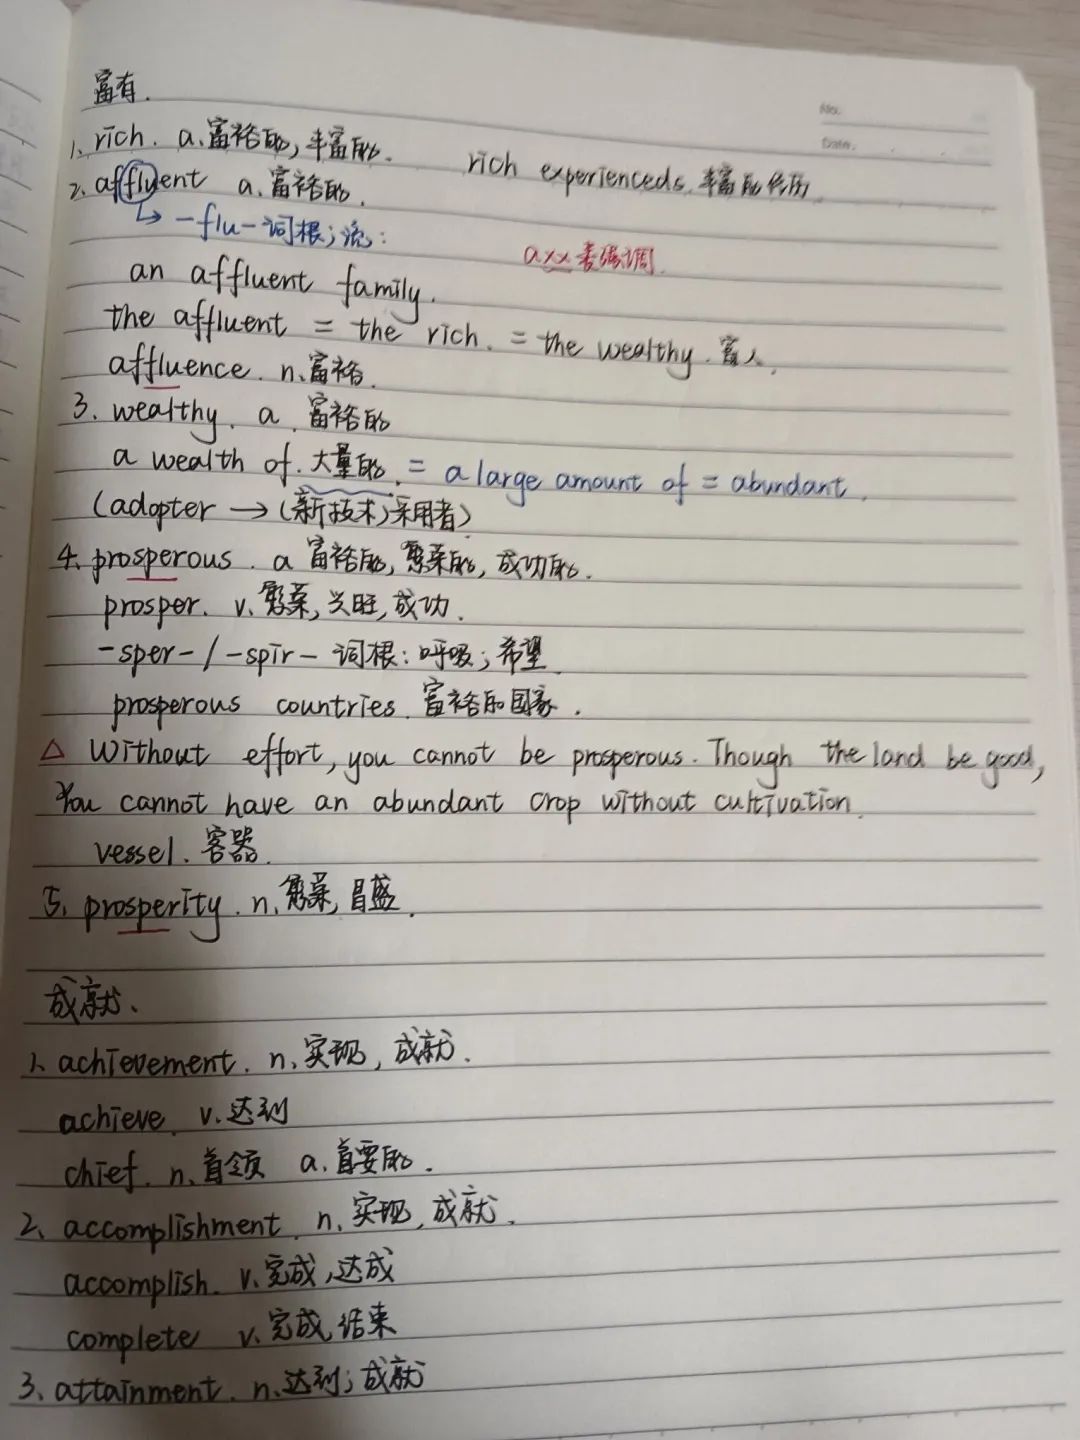 No.
Date.
富有.
1、rich. a、富裕的,丰富的.
rich experienceds. 丰富的经历
2. affluent a. 富裕的.
↳ -flu- 词根;流:
axx 表强调.
an affluent family.
the affluent = the rich. = the wealthy. 富人.
affluence. n. 富裕.
3. wealthy. a. 富裕的
a wealth of. 大量的. = a large amount of = abundant.
(adopter → (新技术)采用者)
4. prosperous. a 富裕的,繁荣的,成功的.
prosper. v. 繁荣,兴旺,成功.
-sper- / -spir- 词根:呼吸;希望.
prosperous countries. 富裕的国家.
△ Without effort, you cannot be prosperous. Though the land be good,
You cannot have an abundant crop without cultivation.
vessel. 容器.
5. prosperity. n. 繁荣,昌盛.
成就、
1、achievement. n、实现,成就.
achieve. v. 达到
chief. n. 首领 a. 首要的.
2、accomplishment. n. 实现,成就.
accomplish. v. 完成,达成
complete v. 完成,结束
3、attainment. n. 达到;成就